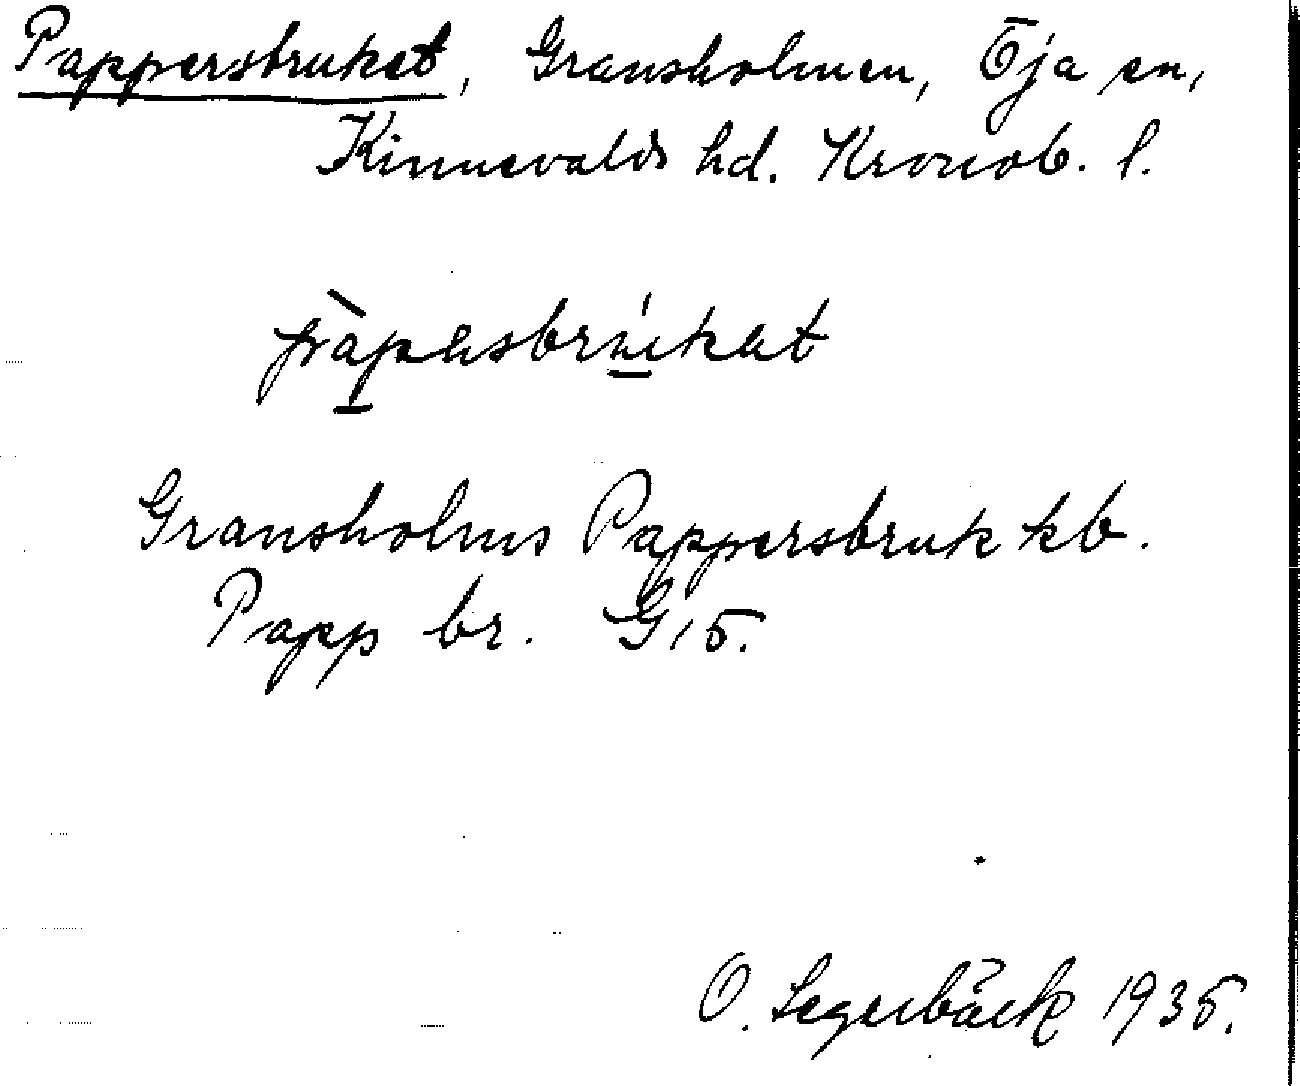 Pappersbruket, Gransholmen, Öja sn,
Kinnevalds hd. Kronob. l.
Gransholms Pappersbruk kb.
Papp br. G 15.
O. Segerbäck 1935.